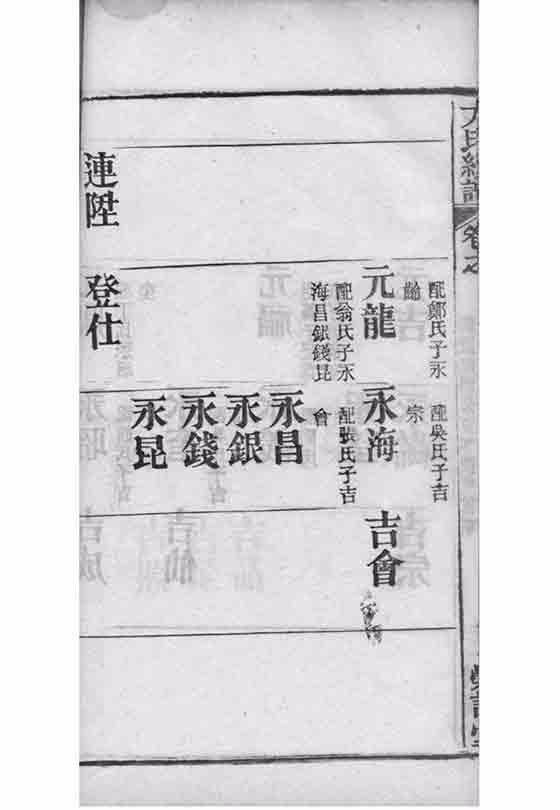 方氏
卷之
配鄭氏子永
䶮
配吳氏子吉
宗
元龍
配翁氏子永
海昌銀錢昆
永海
配張氏子吉
會
吉會
永昌
永銀
永錢
永昆
連陞
登仕